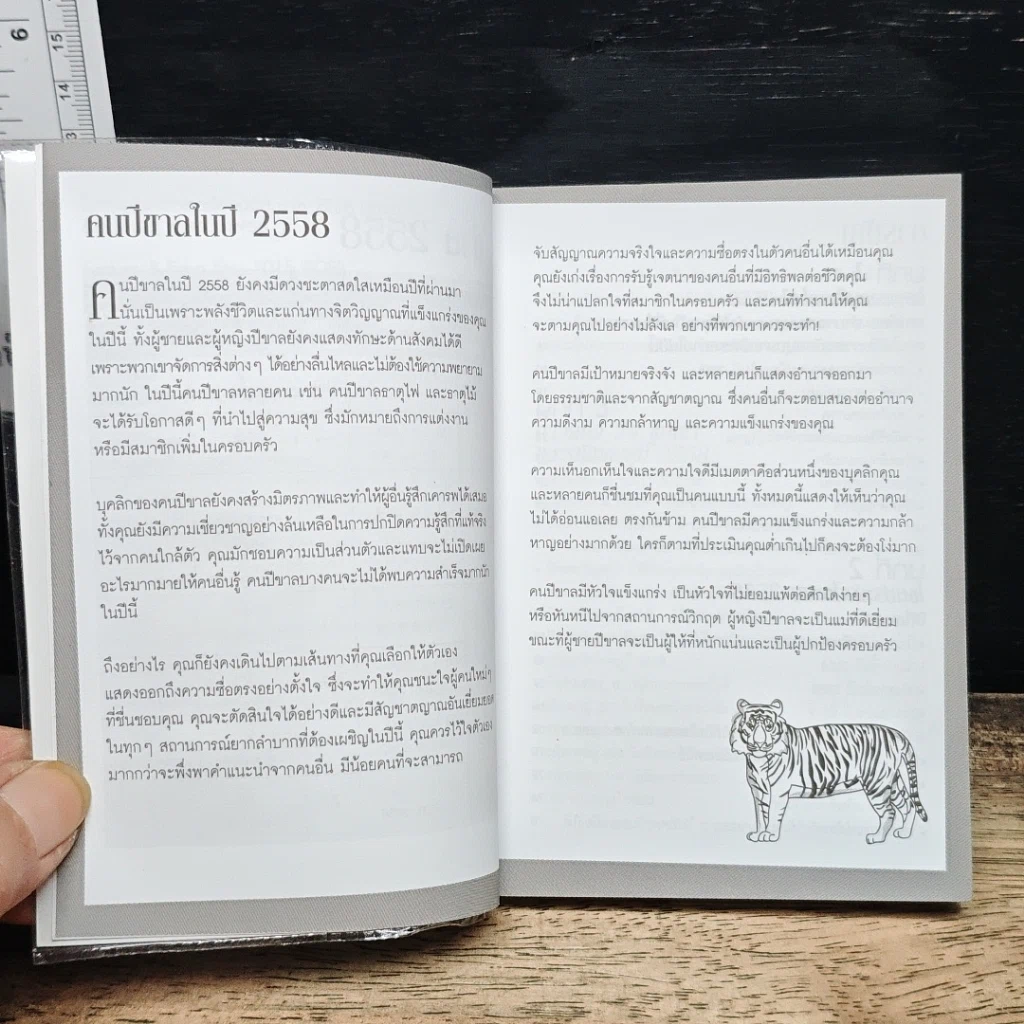 6
15
14
คนปีขาลในปี 2558
คนปีขาลในปี 2558 ยังคงมีดวงชะตาสดใสเหมือนปีที่ผ่านมา
นั่นเป็นเพราะพลังชีวิตและแก่นทางจิตวิญญาณที่แข็งแกร่งของคุณ
ในปีนี้ ทั้งผู้ชายและผู้หญิงปีขาลยังคงแสดงทักษะด้านสังคมได้ดี
เพราะพวกเขาจัดการสิ่งต่างๆ ได้อย่างลื่นไหลและไม่ต้องใช้ความพยายาม
มากนัก ในปีนี้คนปีขาลหลายคน เช่น คนปีขาลธาตุไฟ และธาตุไม้
จะได้รับโอกาสดีๆ ที่นำไปสู่ความสุข ซึ่งมักหมายถึงการแต่งงาน
หรือมีสมาชิกเพิ่มในครอบครัว
บุคลิกของคนปีขาลยังคงสร้างมิตรภาพและทำให้ผู้อื่นรู้สึกเคารพได้เสมอ
ทั้งคุณยังมีความเชี่ยวชาญอย่างล้นเหลือในการปกปิดความรู้สึกที่แท้จริง
ไว้จากคนใกล้ตัว คุณมักชอบความเป็นส่วนตัวและแทบจะไม่เปิดเผย
อะไรมากมายให้คนอื่นรู้ คนปีขาลบางคนจะไม่ได้พบความสำเร็จมากนัก
ในปีนี้
ถึงอย่างไร คุณก็ยังคงเดินไปตามเส้นทางที่คุณเลือกให้ตัวเอง
แสดงออกถึงความซื่อตรงอย่างตั้งใจ ซึ่งจะทำให้คุณชนะใจผู้คนใหม่ๆ
ที่ชื่นชอบคุณ คุณจะตัดสินใจได้อย่างดีและมีสัญชาตญาณอันเยี่ยมยอด
ในทุกๆ สถานการณ์ยากลำบากที่ต้องเผชิญในปีนี้ คุณควรไว้ใจตัวเอง
มากกว่าจะพึ่งพาคำแนะนำจากคนอื่น มีน้อยคนที่จะสามารถ
จับสัญญาณความจริงใจและความซื่อตรงในตัวคนอื่นได้เหมือนคุณ
คุณยังเก่งเรื่องการรับรู้เจตนาของคนอื่นที่มีอิทธิพลต่อชีวิตคุณ
จึงไม่น่าแปลกใจที่สมาชิกในครอบครัว และคนที่ทำงานให้คุณ
จะตามคุณไปอย่างไม่ลังเล อย่างที่พวกเขาควรจะทำ!
คนปีขาลมีเป้าหมายจริงจัง และหลายคนก็แสดงอำนาจออกมา
โดยธรรมชาติและจากสัญชาตญาณ ซึ่งคนอื่นก็จะตอบสนองต่ออำนาจ
ความดีงาม ความกล้าหาญ และความแข็งแกร่งของคุณ
ความเห็นอกเห็นใจและความใจดีมีเมตตาคือส่วนหนึ่งของบุคลิกคุณ
และหลายคนก็ชื่นชมที่คุณเป็นคนแบบนี้ ทั้งหมดนี้แสดงให้เห็นว่าคุณ
ไม่ได้อ่อนแอเลย ตรงกันข้าม คนปีขาลมีความแข็งแกร่งและความกล้า
หาญอย่างมากด้วย ใครก็ตามที่ประเมินคุณต่ำเกินไปก็คงจะต้องโง่มาก
คนปีขาลมีหัวใจแข็งแกร่ง เป็นหัวใจที่ไม่ยอมแพ้ต่อศึกใดง่ายๆ
หรือหันหนีไปจากสถานการณ์วิกฤต ผู้หญิงปีขาลจะเป็นแม่ที่ดีเยี่ยม
ขณะที่ผู้ชายปีขาลจะเป็นผู้ให้ที่หนักแน่นและเป็นผู้ปกป้องครอบครัว